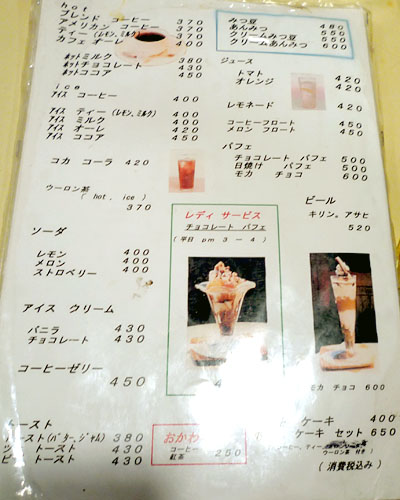 hot
ブレンド コーヒー 370
アメリカン コーヒー 370
ティー (レモン,ミルク) 370
カフェ オーレ 400
ホットミルク 380
ホットチョコレート 430
ホットココア 450
ice
アイス コーヒー 400
アイス ティー (レモン,ミルク) 400
アイス ミルク 400
アイス オーレ 420
アイス ココア 450
コカ コーラ 420
ウーロン茶
( hot, ice )
370
ソーダ
レモン 400
メロン 400
ストロベリー 400
アイス クリーム
バニラ 430
チョコレート 430
コーヒーゼリー
450
トースト
トースト(バター,ジャム) 380
トースト 430
トースト 430
みつ豆 480
あんみつ 550
クリームみつ豆 550
クリームあんみつ 600
ジュース
トマト 420
オレンジ 420
レモネード 420
コーヒーフロート 450
メロン フロート 450
パフェ
チョコレート パフェ 500
日焼け パフェ 500
モカ チョコ 600
ビール
キリン,アサヒ
520
レディ サービス
チョコレート パフェ
(平日 pm 3 — 4)
4
モカ チョコ 600
おかわ
コーヒー
紅茶 250
ケーキ 400
ケーキ セット 650
ウーロン茶 付き)
(消費税込み)